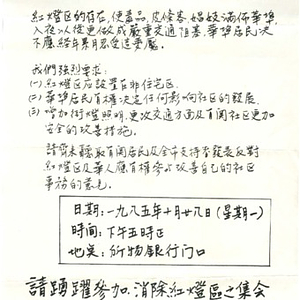 紅燈區的存在,使毒品、皮條客、娼妓滿佈華埠
入夜以後更做成嚴重交通阻塞.華埠居民決
不應經年累月忍受這
我們強烈要求:
(一) 紅燈區應設置在非住宅区
(二) 華埠居民有權決定任何影响社區的發展.
(三) 增加街燈照明,更改交通方面及有関社區更加
安全的改善措施.
請齊來聽取有関居民及全市支持者發表反對
紅燈區及華人應有權參与改善自己的社區
事務的意見.
日期:一九八五年十月廿八日(星期一)
時間:下午五時正
地點:所物銀行门口
請踴躍參加,消除紅燈區之集会